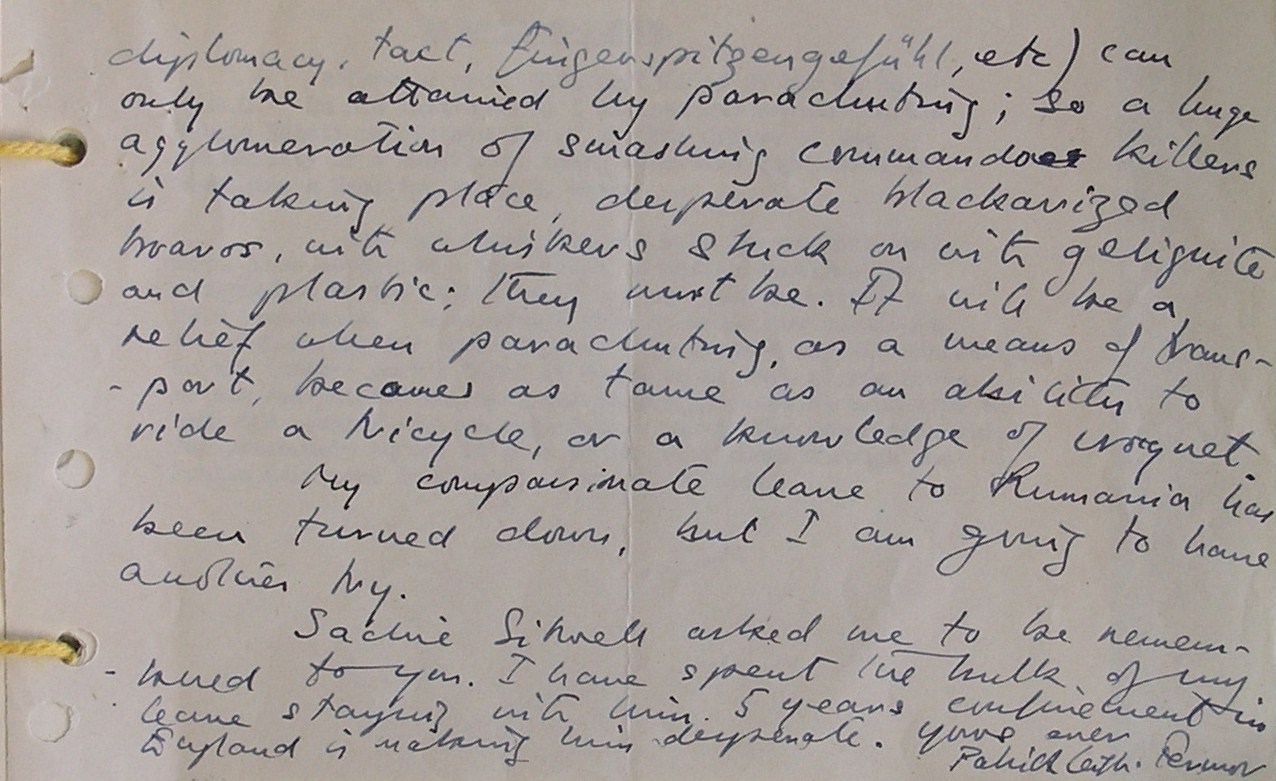 diplomacy, tact, fingerspitzengefühl, etc) can
only be attained by parachuting; so a huge
agglomeration of smashing commando killers
is taking place, desperate blackavized
bravos, with whiskers stuck on with gelignite
and plastic; they must be. It will be a
relief when parachuting, as a means of trans-
-port, becomes as tame as an ability to
ride a bicycle, or a knowledge of croquet.
My compassionate leave to Rumania has
been turned down, but I am going to have
another try.
Sachie Sitwell asked me to be remem-
-bered to you. I have spent the bulk of my
leave staying with him. 5 years confinement in
England is making him desperate. yours ever
Patrick Leigh. Fermor